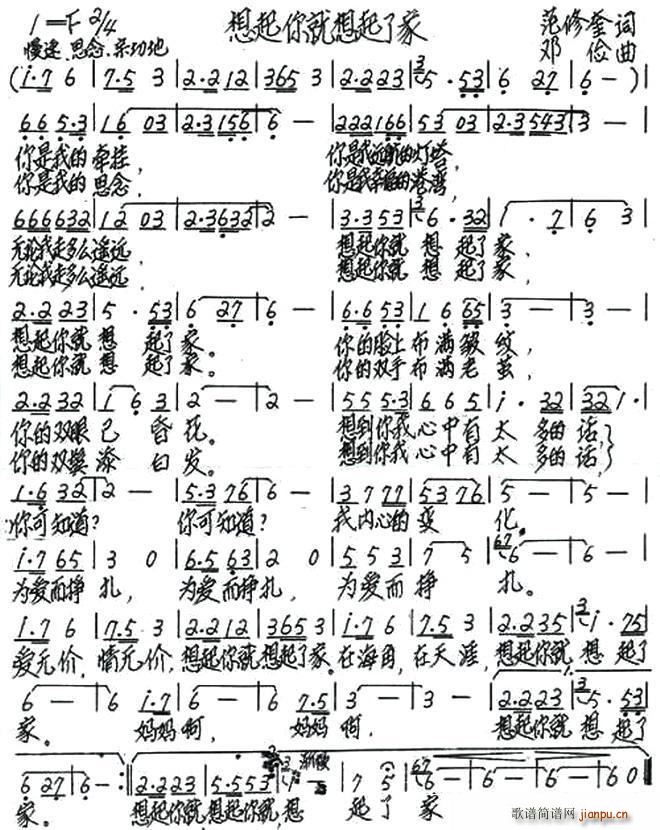 1=F 2/4 想起你就想起了家 范修奎 词
慢速、思念、亲切地 邓 俭 曲
(i·7 6 | 7·5 3 | 2·2 1 2 | 3 6 5 3 | 2·2 2 3 | 3 5·5 3 | 6 2 7 | 6 — ) |
6 6 5·3 | 1 6 0 3 | 2·3 1 5 6 | 6 — | 2 2 2 1 6 6 | 5 3 0 3 | 2·3 5 4 3 | 3 — |
你是我的牵挂, 你是我远航的灯塔,
你是我的思念, 你是我幸福的港湾,
6 6 6 6 3 2 | 1 2 0 3 | 2·3 6 3 2 | 2 — | 3·3 5 3 | 3 6·3 2 | 1·7 | 6 3 |
无论我走多么遥远, 想起你就 想 起了家,
无论我走多么遥远, 想起你就 想 起了家,
2·2 2 3 | 5·5 3 | 6 2 7 | 6 — | 6·6 5 3 | 1 6 6 5 | 3 — | 3 — |
想起你就 想 起了家。 你的脸上布满皱纹,
想起你就 想 起了家。 你的双手布满老茧,
2·2 3 2 | 1 6 3 | 2 — | 2 — | 5 5 5·3 | 6 6 5 | i·3 2 | 3 2 1· |
你的双眼已昏花。 想到你我心中有太多的话,
你的双鬓添白发。 想到你我心中有太多的话,
1·6 3 2 | 2 — | 5·3 7 6 | 6 — | 3 7 7 7 | 5 3 7 6 | 5 — | 5 — |
你可知道? 你可知道? 我内心的变化。
i·7 6 5 | 3 0 | 6·5 6 3 | 2 0 | 5 5 3 | 7 5 | 67 6 — | 6 — |
为爱而挣扎, 为爱而挣扎, 为爱而挣扎。
i·7 6 | 7·5 3 | 2·2 1 2 | 3 6 5 3 | i·7 6 | 7·5 3 | 2·2 3 5 | 3 i·7 5 |
爱无价,情无价,想起你就想起了家。在海角,在天涯,想起你就 想 起了
6 — | 6 i·7 | 6 — | 6 7·5 | 3 — | 3 — | 2·2 2 3 | 3 5·5 3 |
家。 妈妈啊, 妈妈啊, 想起你就 想 起了
6 2 7 | 6 — :‖ 2·2 2 3 | 5·5 5 3 | | 7 5 | 67 6 — | 6 — | 6 — | 6 0 ‖
家。 想起你就想起你就,想 起了 家
歌谱简谱网
jianpu.cn